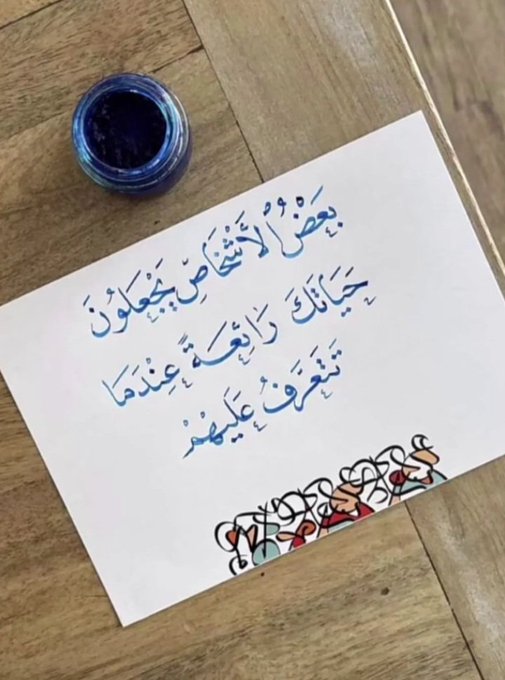 بَعْضُ الْأَشْخَاصِ يَجْعَلُونَ
حَيَاتَكَ رَائِعَةً عِنْدَمَا
تَتَعَرَّفُ عَلَيْهِمْ